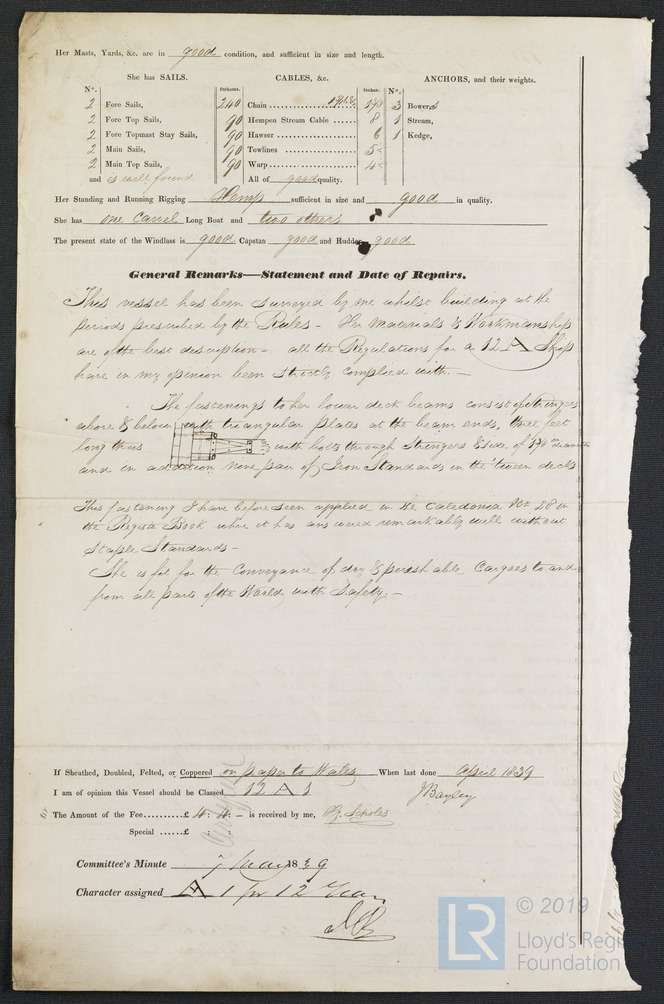 Her Masts, Yards, &c. are in good condition, and sufficient in size and length.
She has SAILS. CABLES, &c. ANCHORS, and their weights.
N°. Fathoms. Inches. N°.
2 Fore Sails, 240 Chain 3 Bowers
2 Fore Top Sails, 90 Hempen Stream Cable 8 1 Stream,
2 Fore Topmast Stay Sails, 90 Hawser 6 1 Kedge,
2 Main Sails, 90 Towlines 5
2 Main Top Sails, 90 Warp 4
and is well found All of good quality.
Her Standing and Running Rigging Hemp sufficient in size and good in quality.
She has one Carvel Long Boat and two others
The present state of the Windlass is good Capstan good and Rudder good
General Remarks—Statement and Date of Repairs.
This vessel has been surveyed by me whilst building at the
periods prescribed by the Rules - Her Materials & Workmanship
are of the best description - all the Regulations for a 12 A Ship
have in my opinion been strictly complied with. -
The fastenings to her lower deck beams consist of Stringers
above & below with triangular plates at the beam ends, three feet
long thus with bolts through Stringers & side of diameter
and in addition nine pair of Iron Standards in the 'tween decks
This fastening I have before seen applied in the Caledonia No 28 in
the Register Book where it has answered remarkably well without
Staple Standards -
She is fit for the Conveyance of dry & perishable Cargoes to and
from all parts of the World with Safety. -
If Sheathed, Doubled, Felted, or Coppered on paper to Wales When last done April 1839
I am of opinion this Vessel should be Classed 12 A 1
J Bayley
The Amount of the Fee..........£ 4 : 4 : - is received by me, Scholes
Special ......£ : :
Committee's Minute 7 May 1839
Character assigned A 1 for 12 Years
© 2019
LR Lloyd's Register
Foundation